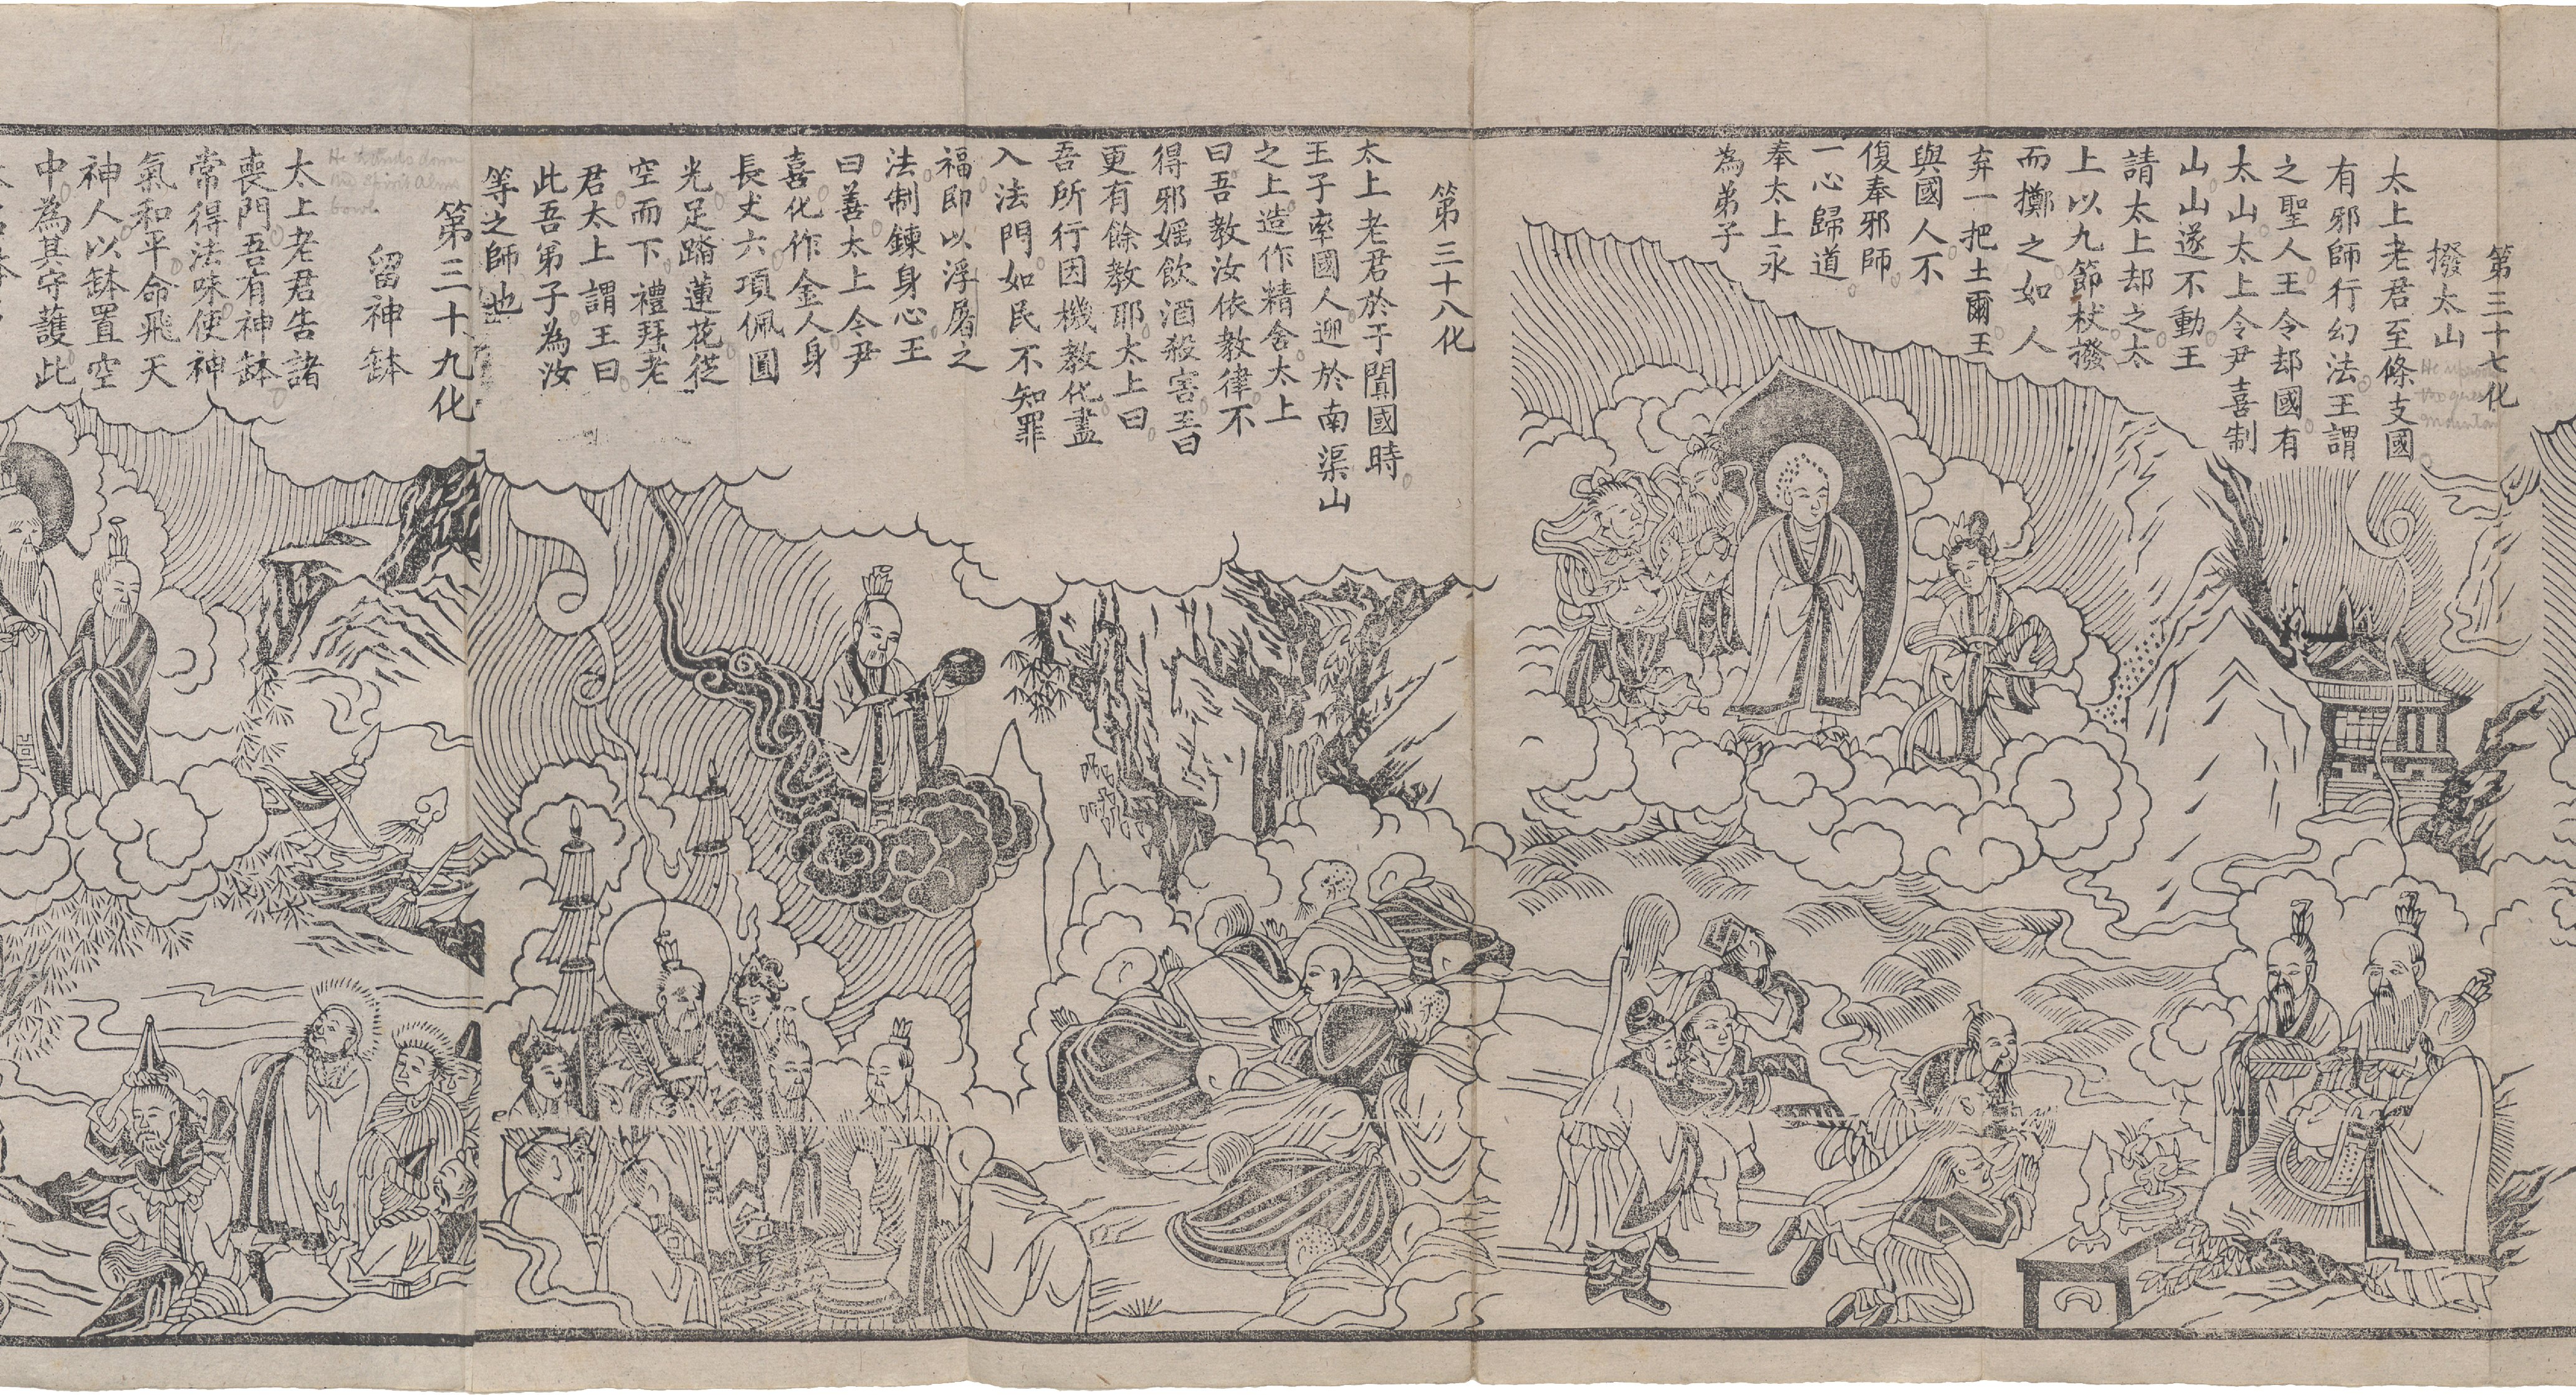 第三十七化
撥太山
太上老君至條支國
有邪師行幻法王謂
之聖人王令却國有
太山太上令尹喜制
山山遂不動王
請太上却之太
上以九節杖撥
而擲之如人
弃一把土爾王
與國人不
復奉邪師
一心歸道
奉太上永
為弟子
第三十八化
太上老君於于闐國時
王子率國人迎於南渠山
之上造作精舍太上
曰吾教汝依教律不
得邪婬飲酒殺害王曰
更有餘教耶太上曰
吾所行因機教化盡
入法門如民不知罪
福即以浮屠之
法制鍊身心王
曰善太上令尹
喜化作金人身
長丈六項佩圓
光足踏蓮花從
空而下禮拜老
君太上謂王曰
此吾弟子為汝
等之師也
第三十九化
留神缽
He hands down
the spirit alms
bowl
太上老君告諸
喪門吾有神缽
常得法味使神
氣和平命飛天
神人以缽置空
中為其守護此